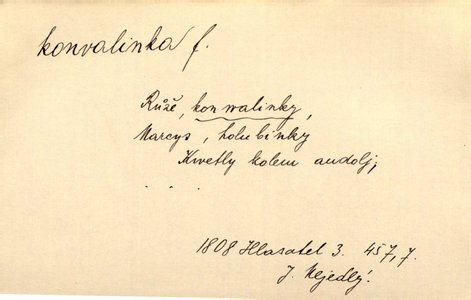 konvalinka f.
Růže, konwalinky,
Narcys, holubinky
Kwetly kolem audolj;
. . .
1808 Hlasatel 3. 457,7.
J. Nejedlý.